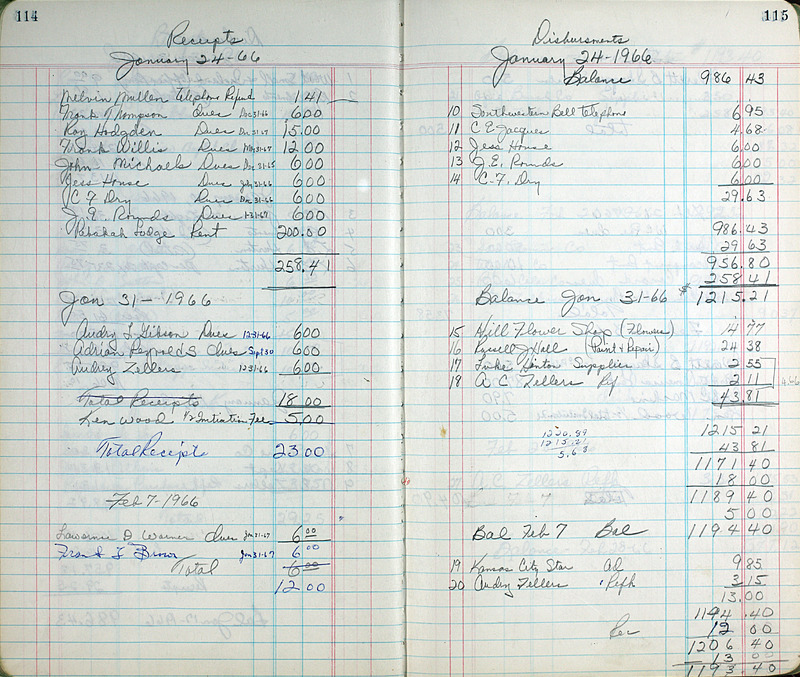 114
Receipts
January 24-66
Melvin Mullen Telephone Refund 1 41
Frank Thompson Dues Dec 31-66 6 00
Ray Hodgden Dues Dec 31-67 15.00
Frank Willis Dues 31-67 12 00
John Michaels Dues Dec 31-65 6 00
Jess House Dues July 31-66 6 00
C F Dry Dues Dec 31-66 6 00
J. E. Rounds Dues 1-31-67 6 00
Rebekah Lodge Rent 200.00
258.41
Jan 31-1966
Audry L Gibson Dues 12-31-66 6 00
Adrian Reynolds Dues Sept 30 6 00
Audrey Zellers 12-31-66 6 00
Total Receipts 18 00
Ken Wood 1/2 Initiation Fee 5.00
Total Receipt 23 00
Feb 7-1966
Lawrence D Warner Dues Jan 31-67 6 00
Frank L Brown Jan 31-67 6 00
Total 6 00
12 00
115
Disbursments
January 24-1966
Balance 986 43
10 Southwestern Bell Telephone 6 95
11 C E Jacques 4.68
12 Jess House 6 00
13 J. E. Rounds 6 00
14 C-F. Dry 6 00
29.63
986 43
29 63
956.80
258 41
Balance Jan 31-66 $ 1215.21
15 Hill Flower Shop (Flowers) 14 77
16 Russell J Hall (Paint & Repair) 24 38
17 Luke Supplies 2 55
18 A. C. Zellers 2 11
43.81
1220.89
1215.21
5.63
1215 21
43 81
1171 40
18 00
1189 40
5 00
Bal Feb 7 Bal 1194 40
19 Kansas City Star Ad 9 85
20 Audry Zellers Refh 3 15
13.00
1194 .40
Rec 12 00
1206 40
13 00
1193.40